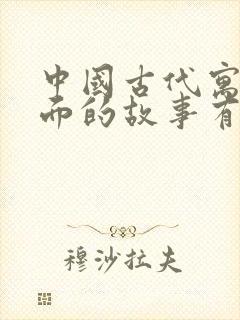 中國古代寓
而的故事有
穆沙拉夫